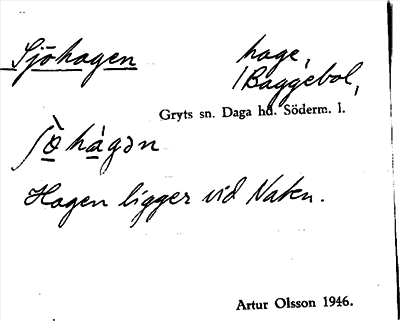 Sjöhagen hage,
/Baggebol,
Gryts sn. Daga hd. Söderm. l.
ʃö̀ hágən
Hagen ligger vid Naten.
Artur Olsson 1946.